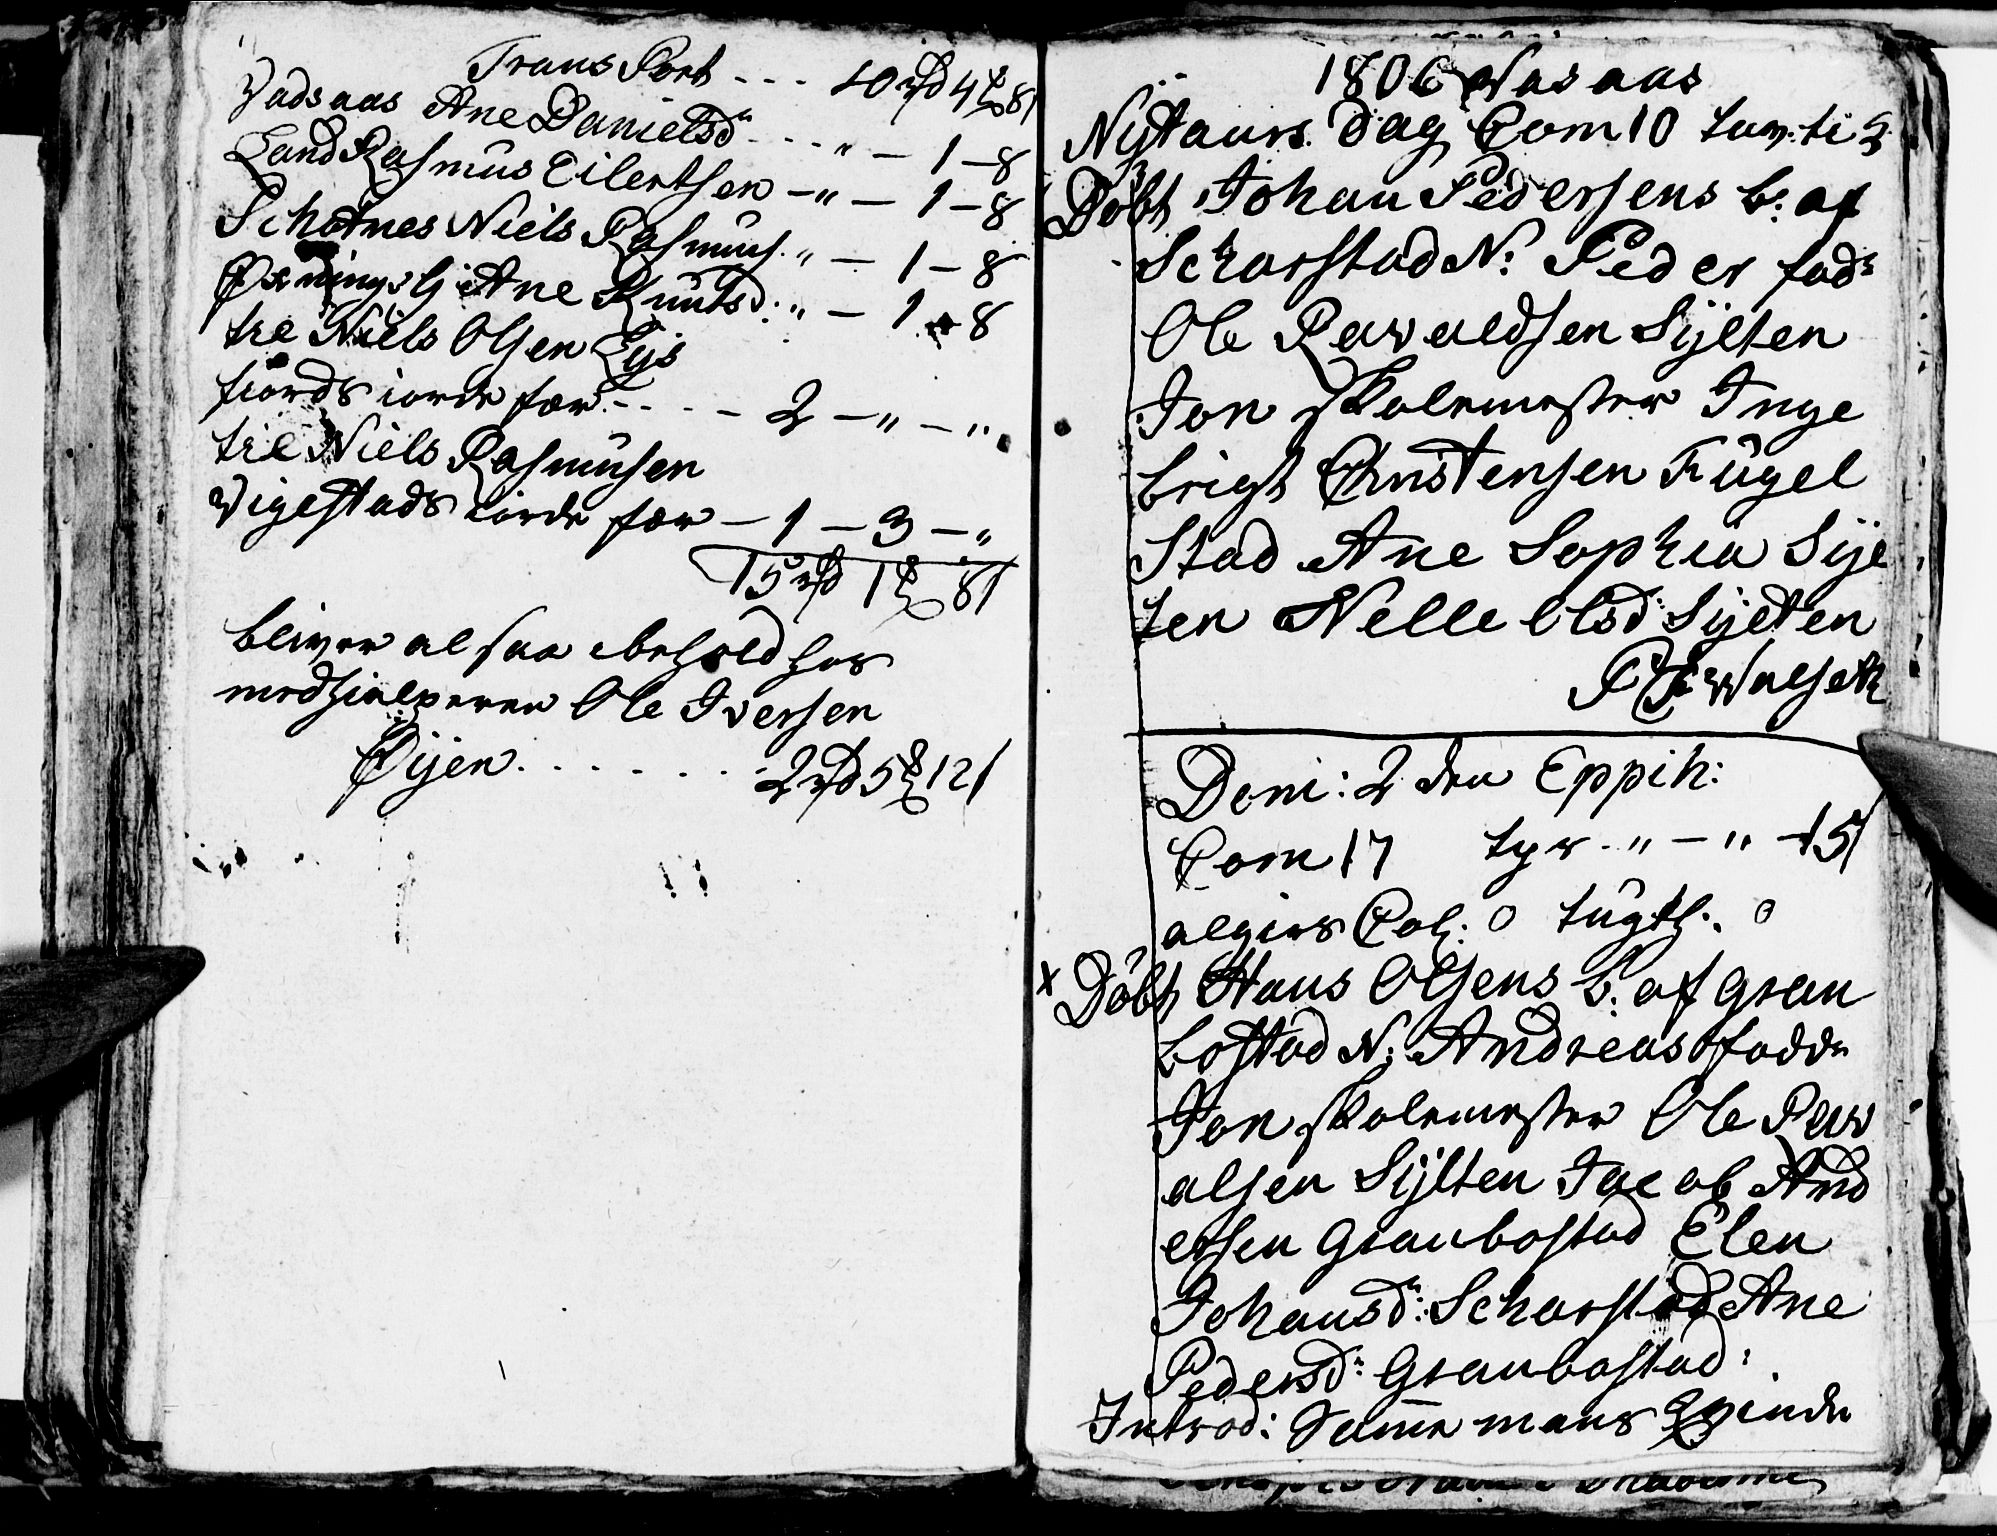 Trans Port - - - 10 rd 4 8
Vadsaas Ane Danielsd - - - " - 1 - 8
Land Rasmus Eilertsen - " - 1 - 8
Schotnes Niels Rasmus. " - 1 - 8
Ane Knutsd: " - 1 - 8
til Niels Olsen Eys
fiords iorde fær - - - - 2 - " - "
til Niels Rasmusen
Vigestads iorde fær - 1 - 3 - "
15 rd 1 8
bliver al saa i behold hos
medhielperen Ole Iversen
Øijen . . . . . . . 2 rd 5 12
1806 Vasaas
Nytaars Dag Com 10
Döbt Johan Pedersens b: af
Scharstad N: Peder fad
Ole Rawaldsen Sylten
Jon skolemester Inge
brigt Christensen Fugel
stad Ane Sophia Syl
ten Nelle Olsd: Sylten
Walseth
Dom: 2 den Eppih:
Com 17 " - " - 15
algiers Col: 0 tugth. 0
x Döbt Hans Olsens b. af gran
bostad N: Andreas fadde
Jon skolemester Ole Raw
alsen Sylten Jacob And
ersen Granbostad Elen
Johansd: Scharstad Ane
Pedersd: Granbostad:
Introd: Samme mans Qvinde